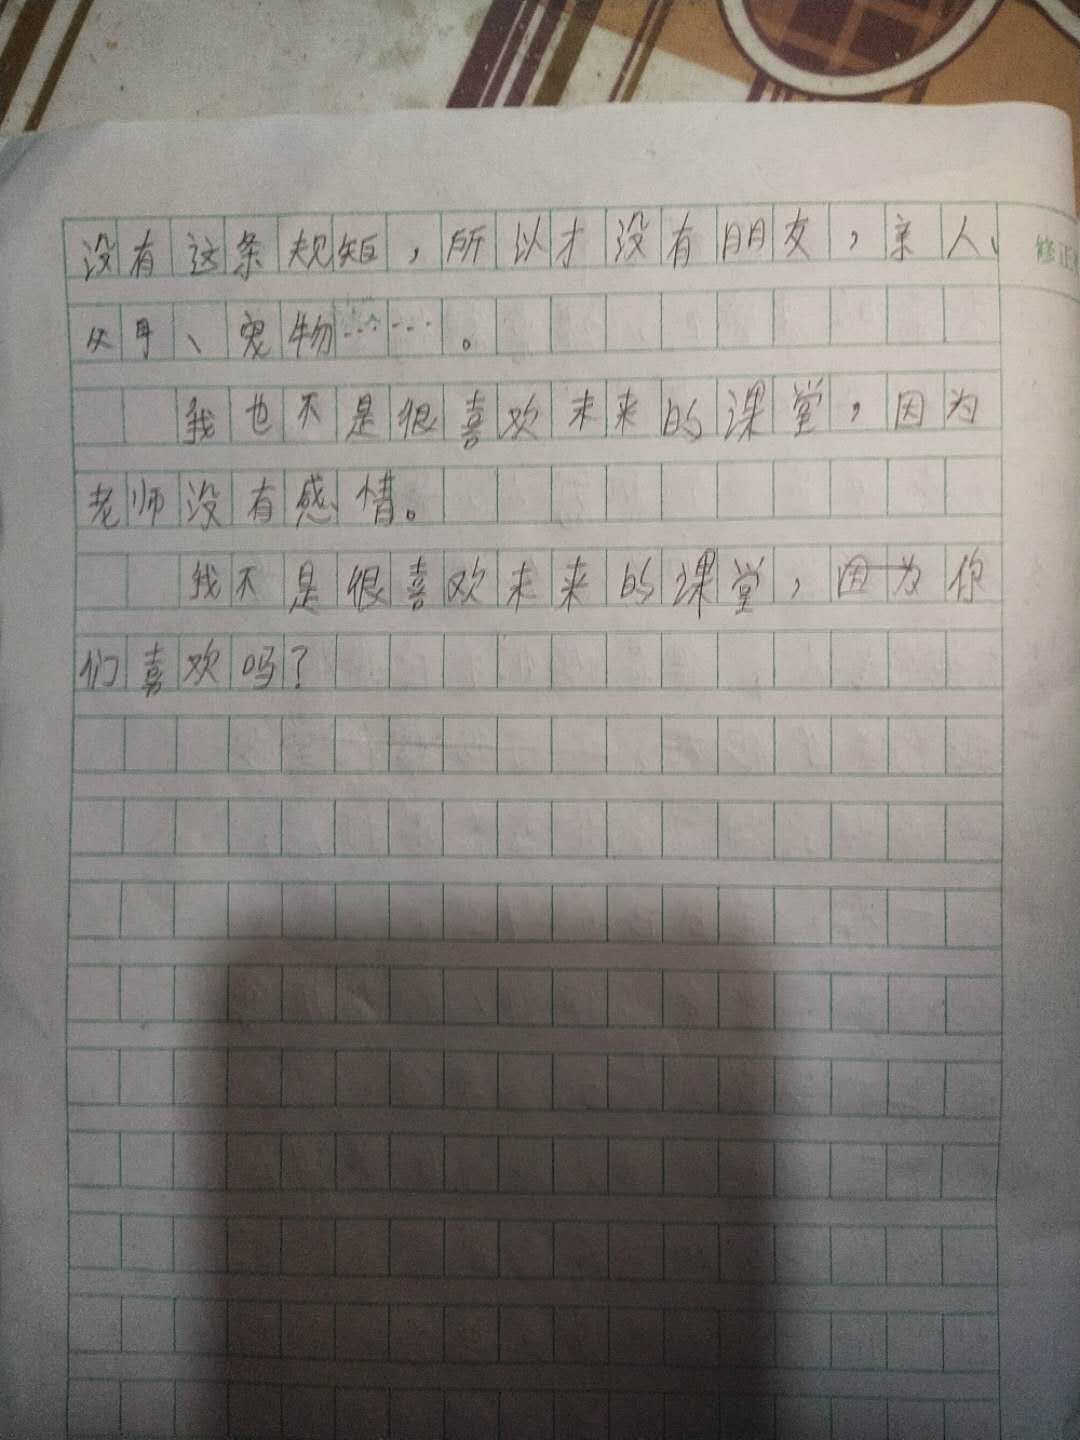 没有这条规矩，所以才没有朋友，亲人、
父母、宠物……。
我也不是很喜欢未来的课堂，因为
老师没有感情。
我不是很喜欢未来的课堂，因为你
们喜欢吗？
修正